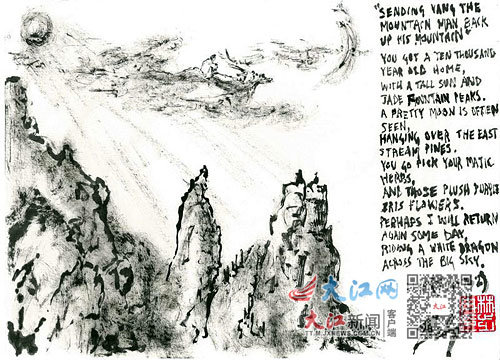 "SENDING YANG THE
MOUNTAIN MAN BACK
UP HIS MOUNTAIN"
YOU GOT A TEN THOUSAND
YEAR OLD HOME,
WITH A TALL SUN AND
JADE FOUNTAIN PEAKS.
A PRETTY MOON IS OFTEN
SEEN,
HANGING OVER THE EAST
STREAM PINES.
YOU GO PICK YOUR MAJIC
HERBS,
AND THOSE PLUSH PURPLE
IRIS FLOWERS.
PERHAPS I WILL RETURN
AGAIN SOME DAY,
RIDING A WHITE DRAGON
ACROSS THE BIG SKY.
大江网
大江新闻 客户端